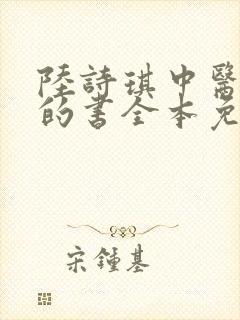 陸詩琪中醫
的書全本免
宋鍾基